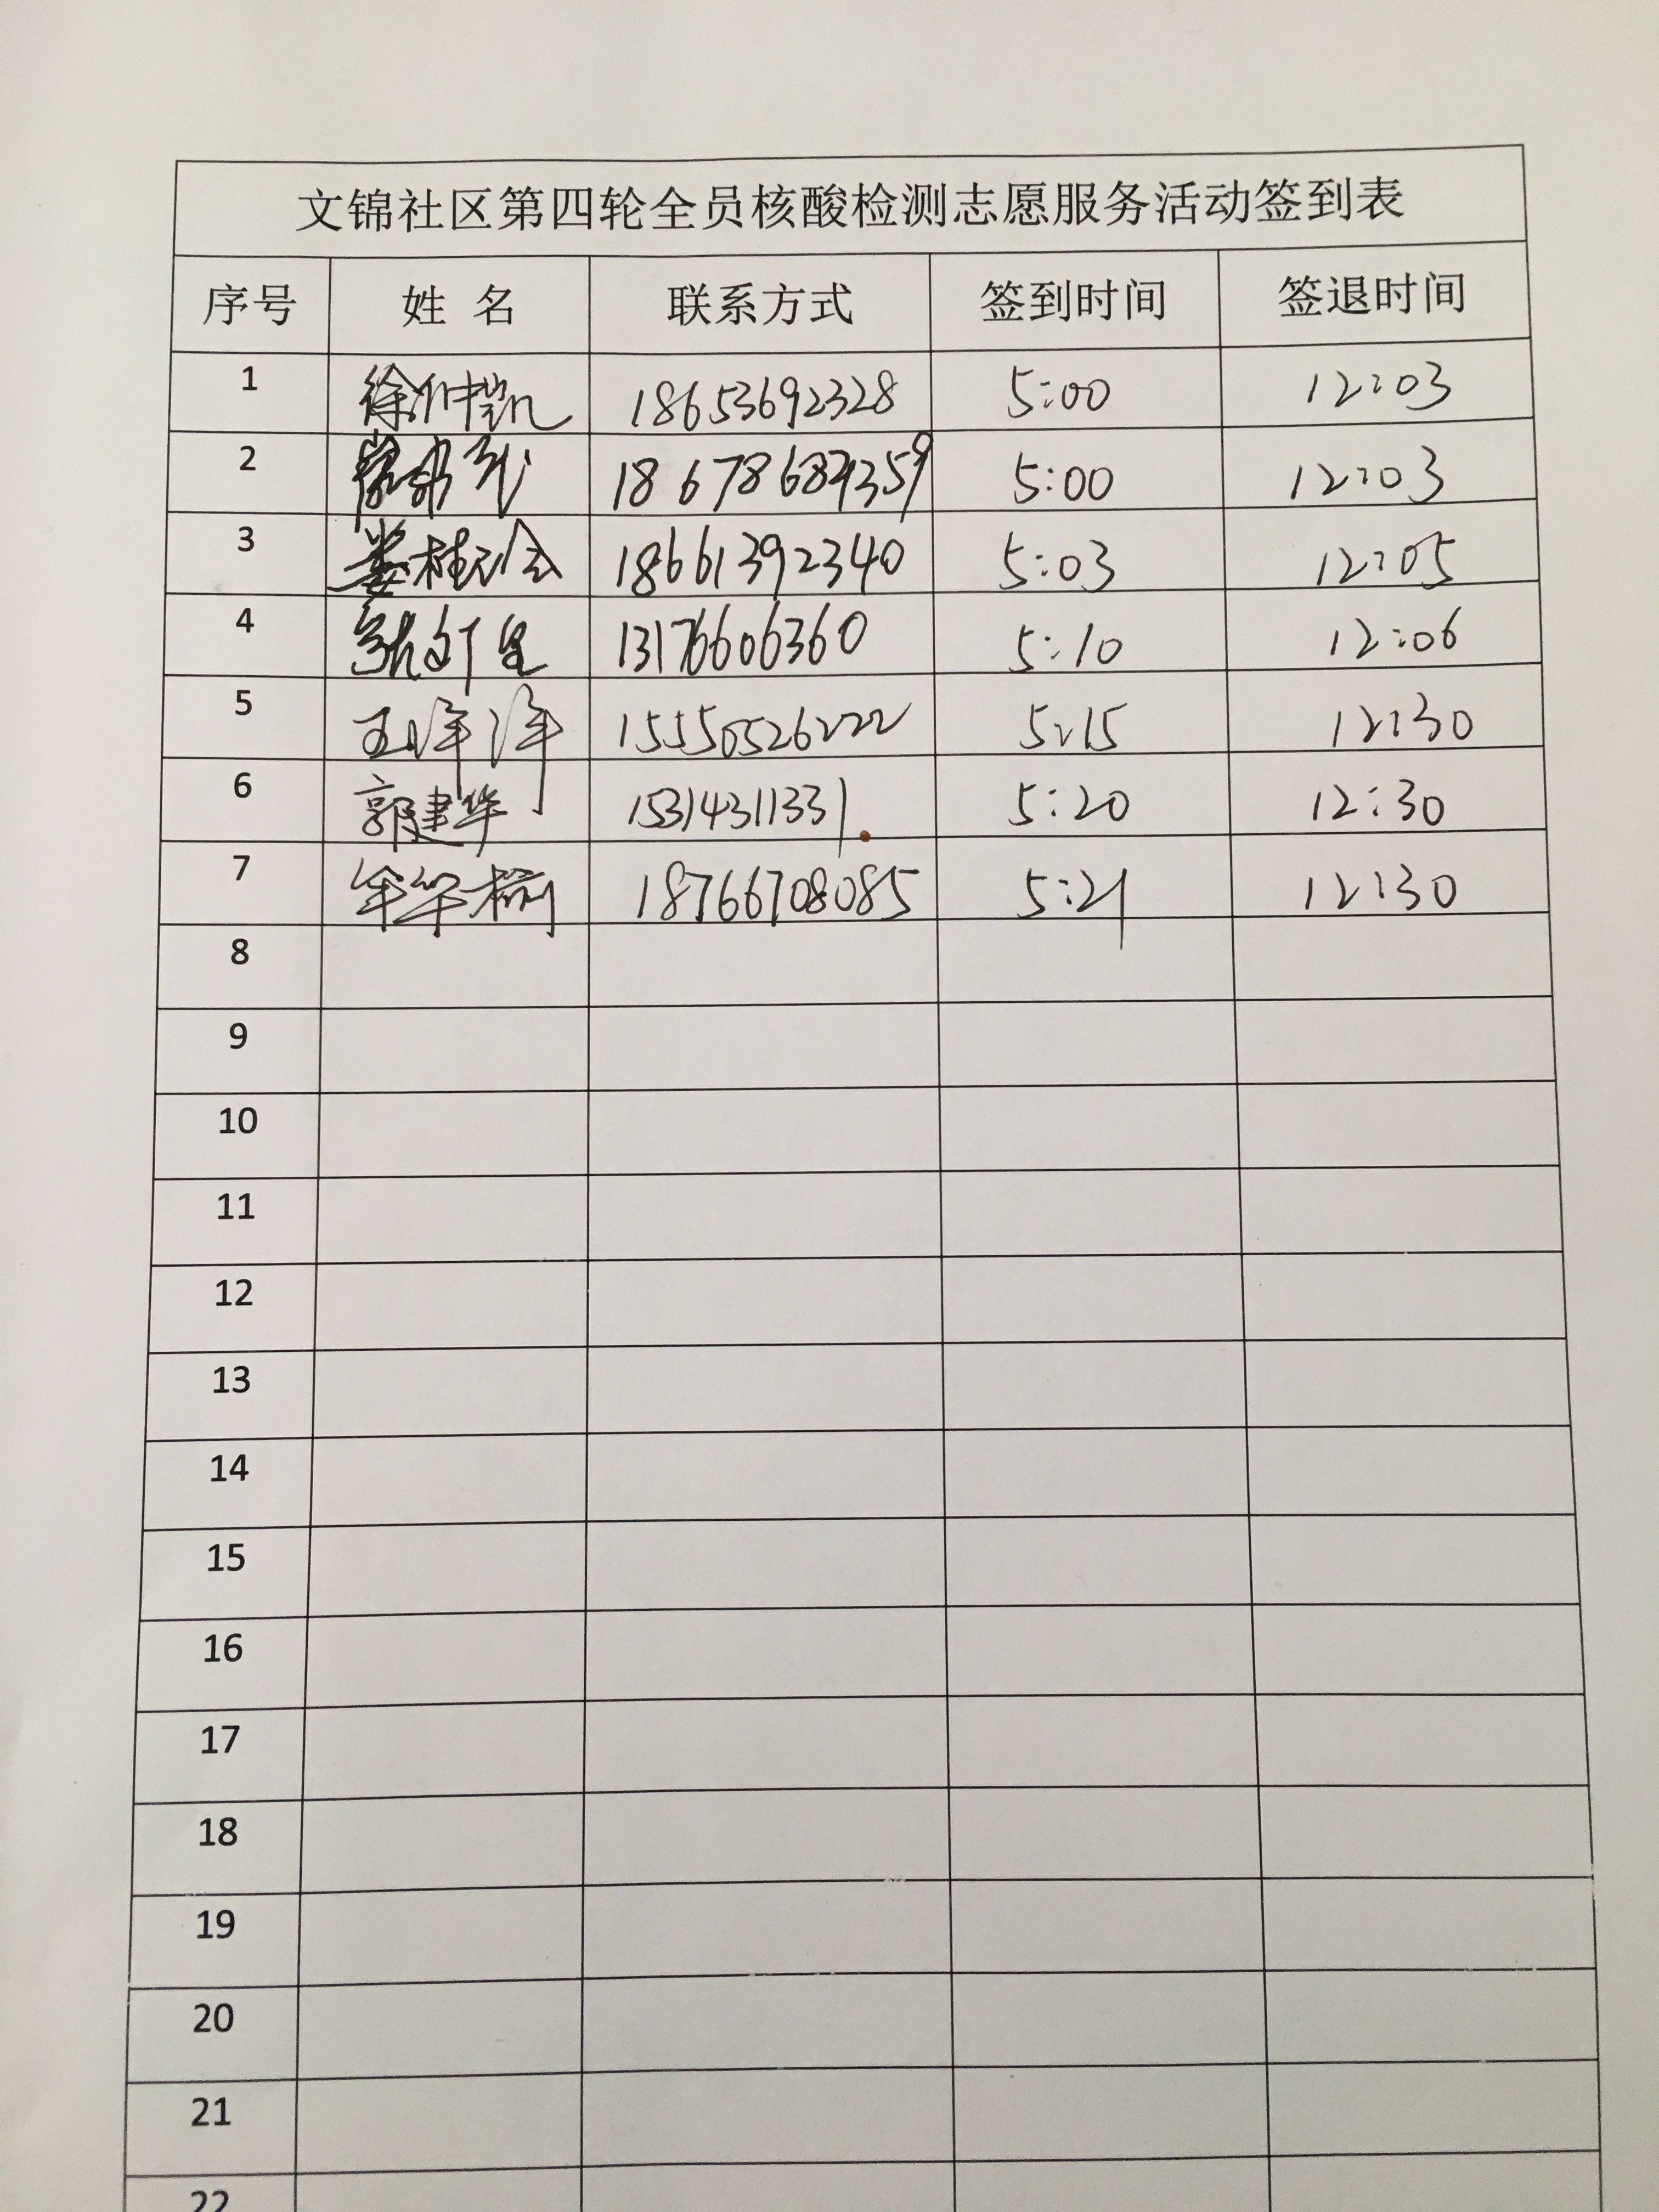 文锦社区第四轮全员核酸检测志愿服务活动签到表
序号 姓 名 联系方式 签到时间 签退时间
1 徐仲凯 18653692328 5:00 12:03
2 5:00 12:03
3 18661392340 5:03 12:05
4 13176606360 5:10 12:06
5 王洋洋 15550526222 5:15 12:30
6 郭建华 15314311331 5:20 12:30
7 18766708085 5:21 12:30
8
9
10
11
12
13
14
15
16
17
18
19
20
21
22